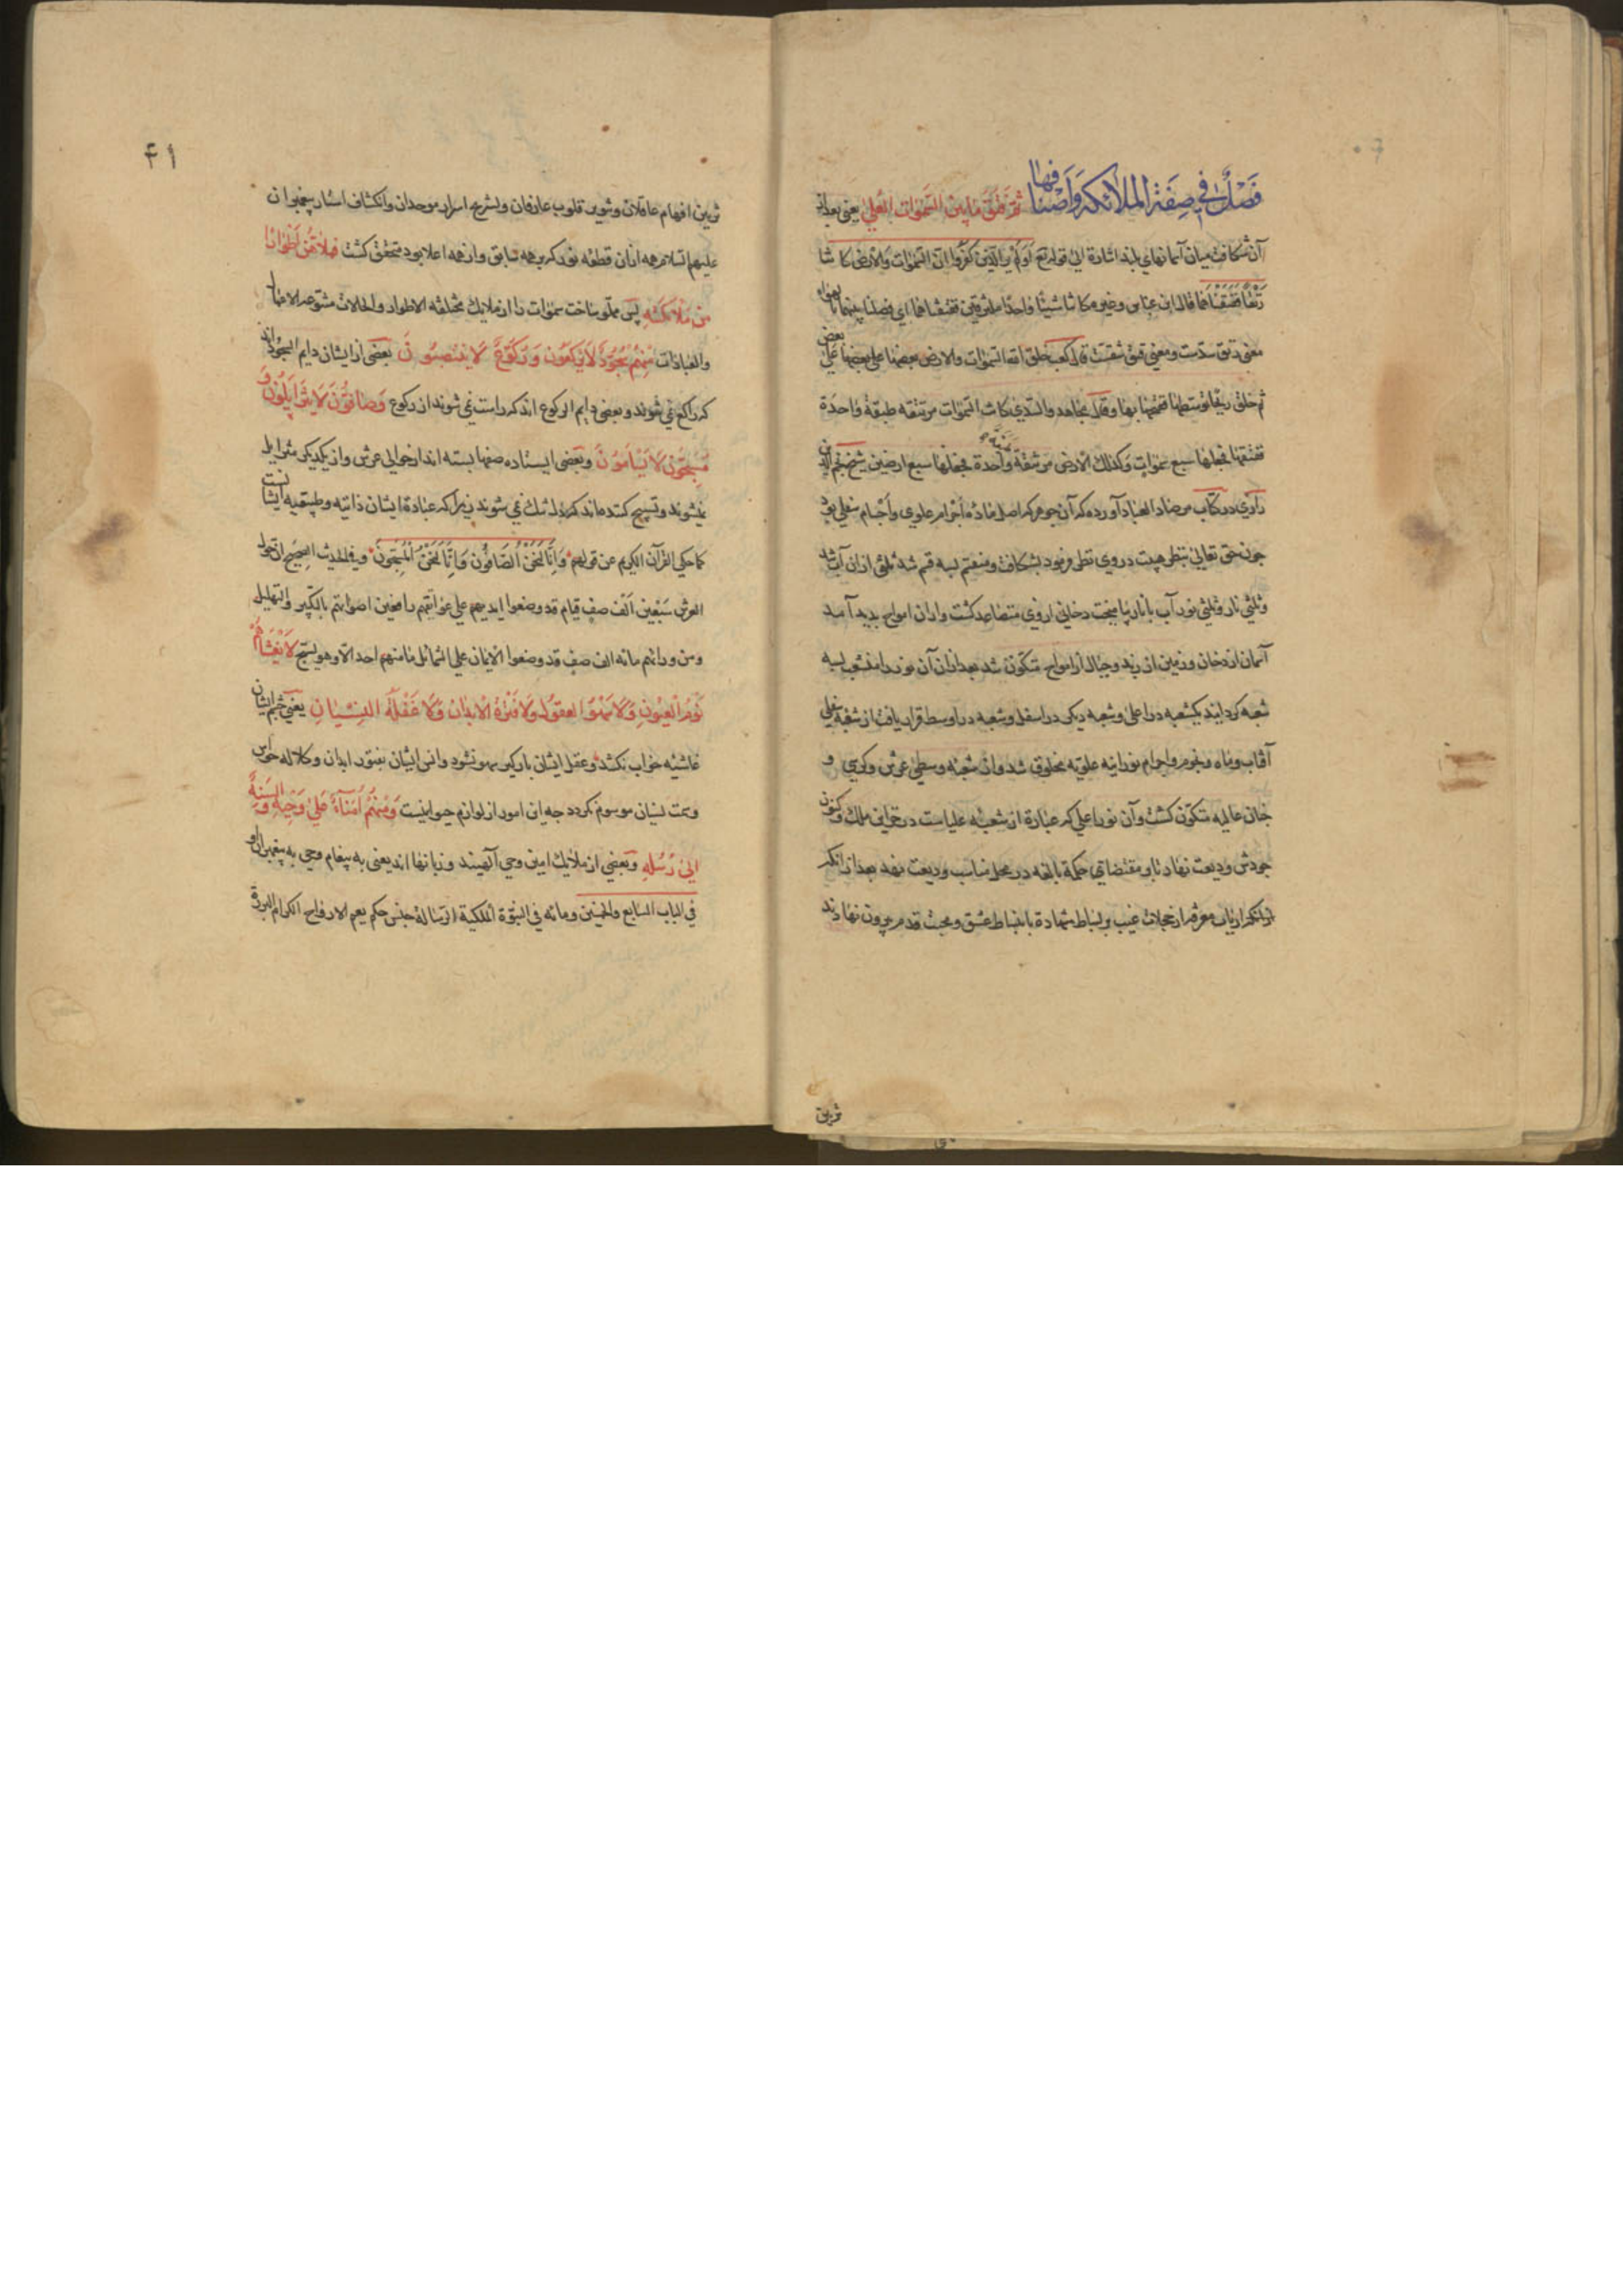 فَصْلٌ فِي صِفَةِ الملائكة وَاَصْنافها ثُمَّ فَتَقَ مَا بَيْنَ السَّمٰوَاتِ العُلىٰ يعنى بعد از
آن شكافت ميان آسمانهاى بلند اشارة الى قوله تع اَوَلَمْ يَرَ الَّذِينَ كَفَرُوا انّ السَّمٰوات وَالاَرْضَ كانتا
رَتْقاً فَفَتَقْنَاهُمَا قال ابن عباس وغيره كانتا شيئا واحدًا ملتزقين ففتقناهما اى فصلنا بينهما بالهواء
معنى رتق سدّست ومعنى فتق شقست قال كعب خلق الله السمٰوات والارض بعضها على بعضها على بعض
ثم خلق ريحا توسطها ففتقها بها وقال مجاهد والسّدى كانت السّمٰوات مرتتقه طبقة واحدة
ففتقها فجعلها سبع سمٰوات وكذلك الارض مرتتقة واحدة فجعلها سبع ارضين شيخ نجم الدين
رازى در كتاب مرصاد العباد آورده كه آن جوهر كه اصل مادّه اجرام علوى واجسام سفلى بود
چون حق تعالى بنظر هيبت در وى نظر فرمود بشكافت ومنقسم بسه قسم شد ثلثى از ان آب شد
وثلثى نار وثلثى نور آب با نار بياميخت دخانى از وى متصاعد كشت واز ان امواج بديد آمد
آسمان از دخان وزمين از زبد وجبال از امواج متكوّن شد بعد از ان آن نور را منشعب بسه
شعبه كردانيد يكشعبه در اعلى وشعبه ديكر در اسفل وشعبه در اوسط قرار يافت از شعبه سفلى
آفتاب وماه ونجوم واجرام نورانيه علويه مخلوق شد واز شعبه وسطى عرش وكرسى و
جنان عاليه متكوّن كشت وآن نور اعلى كه عبارة از شعبه علياست در خزاين ملك وكنون
جودش وديعت نهاد تا بر مقتضاى حكمة بالغه در محل مناسب وديعت نهد بعد از آنكه
ارباب معرفة از حجلات غيب بر بساط شهادة بانبساط عشق ومحبت قدم بيرون نهادند
تزيين
۴۱
تزيين افهام عاقلان وتنوير قلوب عارفان وبشرح اسرار موحدان وانكشاف استار پيغمبران
عليهم السلام همه از آن قطعه نور كه بر همه سابق واز همه اعلا بود متحقق كشت فملأهُنّ اَطْوَارًا
مِن مَلائكَتِهِ پس مملو ساخت سمٰوات را از ملايك مختلفه الاطوار والحالات متنوعه الاعمال
والعبادات مِنْهُمْ سُجُودٌ لَا يَرْكَعُون وَرُكُوعٌ لَا يَنْتَصِبُون بعضى از ايشان دايم السجود اند
كه راكع نمى شوند وبعضى دايم الركوع اند كه راست نمى شوند از ركوع وَصَافُّونَ لَا يَتَزَايَلُونَ وَ
مُسَبِّحُونَ لَا يَسْأَمُونَ وبعضى ايستاده صفها بسته اند از حوالى عرش واز يكديكر متزايل
نميشوند وتسبيح كننده اند كه نمى شوند زيرا كه عبادة ايشان ذاتيه وطبيعيه ايشانست
كما حكى القرآن الكريم عن قولهم وَاِنَّا لَنَحْنُ الصَّافُّونَ وَاِنَّا لَنَحْنُ الْمُسَبِّحُونَ وفى الحديث الصحيح ان حول
العرش سبعين الف صف قيام قد وضعوا ايديهم على عواتقهم رافعين اصواتهم بالتكبير والتهليل
ومن ورائهم مائه الف صف قد وضعوا الايمان على الشمائل ما منهم احد الّا وهو يسبح لَا يَغْشَاهُمْ
نَوْمُ الْعُيُونِ وَلَا سَهْوُ العقول وَلا فَتْرَةُ الاَبدان وَلا غَفْلَة النِّسْيَانِ يعنى چشم ايشان
غاشيه خواب نكشد وعقل ايشان باريكر سهو نشود وانس ايشان بفتور ابدان وكلاله حواس
وسمت نسيان موسوم نكردد چه اين امور از لوازم حيوانيست وَمِنْهُمْ اُمَنَاءُ عَلىٰ وَحْيِهِ وَاَلْسِنَةٌ
اِلىٰ رُسُلِهِ وبعضى از ملايك امين وحى آلهيند وزبانها اند يعنى به پيغام وحى به پيغمبران او
فى الباب السابع والخمسين ومائه فى النبوّة الملكية الرسالة جنس حكم يعم الارواح الكرام البررة